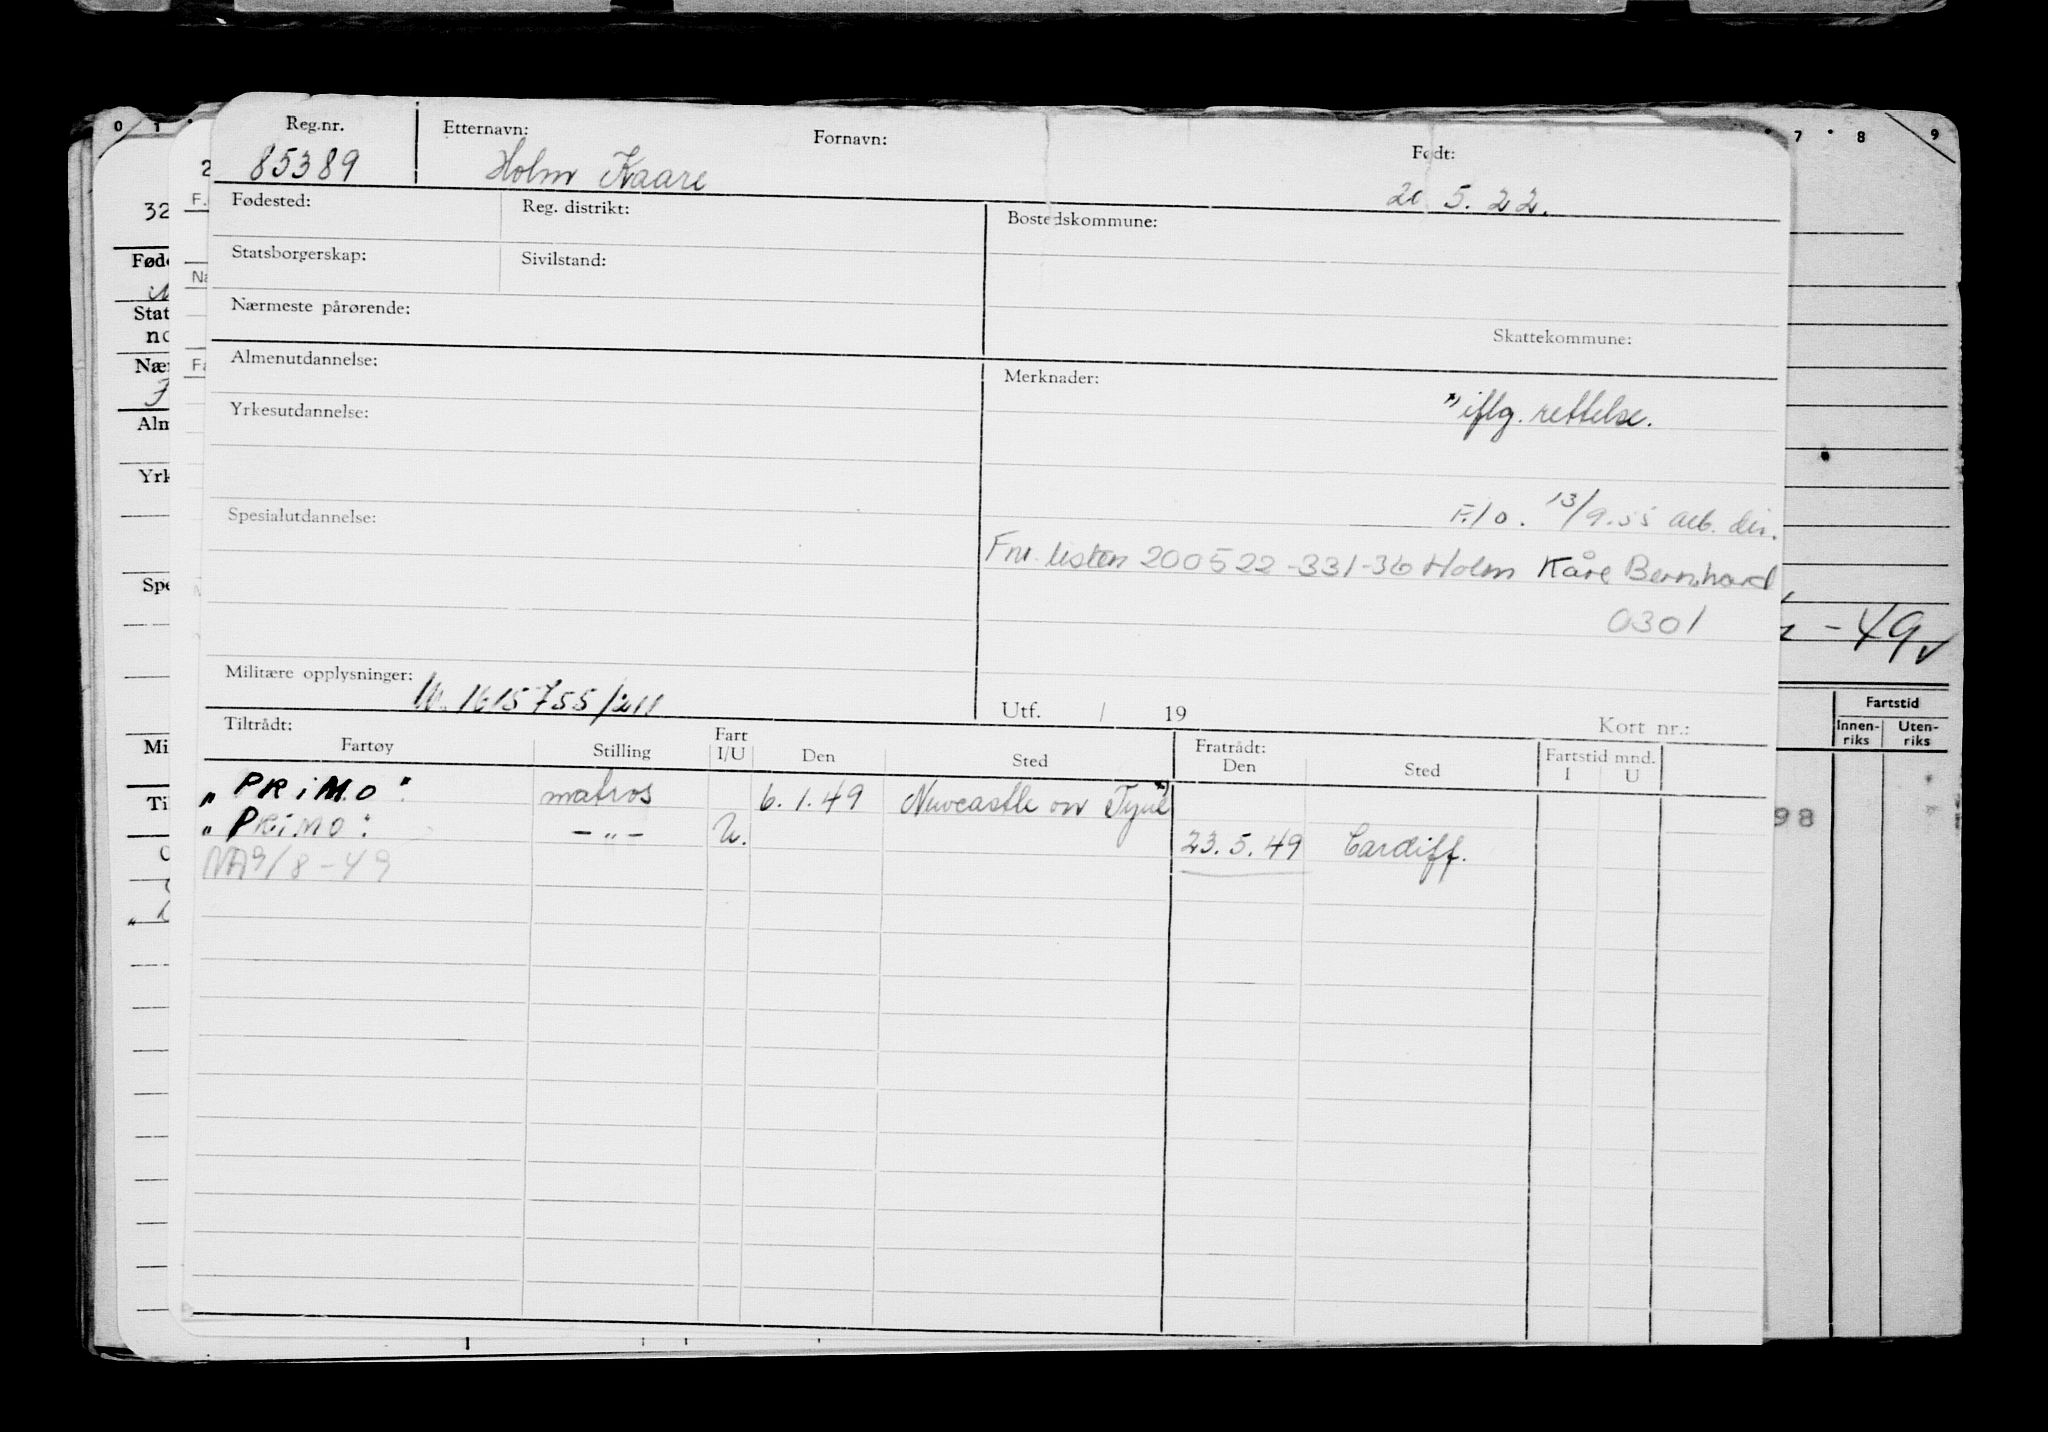 0 1 7 8 9
Reg.nr. Etternavn: Fornavn: Født:
85389 Holm Kaare 20.5.22.
Fødested: Reg. distrikt: Bostedskommune:
Statsborgerskap: Sivilstand:
Nærmeste pårørende: Skattekommune:
Almenutdannelse: Merknader:
") iflg. rettelse.
Yrkesutdannelse:
Spesialutdannelse: F.lo. 13/9.55 arb. dir.
Fnr. listen 200522-331-36 Holm Kåre Bernhard
0301
- 49
Militære opplysninger: 1615755/211
Utf. / 19 Kort nr.:
Tiltrådt: Fratrådt:
Fartøy Stilling Fart I/U Den Sted Den Sted Fartstid mnd. I U
"PRIMO" matros 6.1.49 Newcastle on Tyne
"PRIMO" -"- U. 23.5.49 Cardiff.
NA 9/8-49
Fartstid
Innen-riks Uten-riks
98
32
2
F.
Føde
Na
Stat
no
Nær
Fa
Alm
Yrk
Spe
Mi
Til